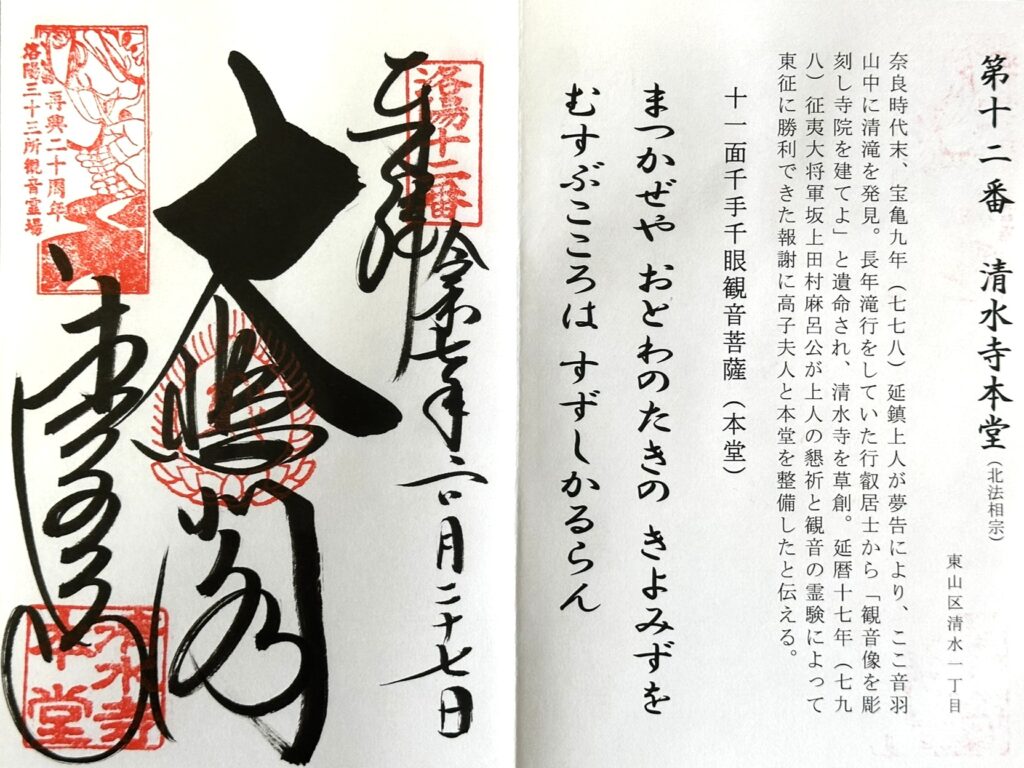 第十二番 清水寺本堂(北法相宗)
東山区清水一丁目
奈良時代末、宝亀九年(七七八)延鎮上人が夢告により、ここ音羽
山中に清滝を発見。長年滝行をしていた行叡居士から「観音像を彫
刻し寺院を建てよ」と遺命され、清水寺を草創。延暦十七年(七九
八)征夷大将軍坂上田村麻呂公が上人の懇祈と観音の霊験によって
東征に勝利できた報謝に高子夫人と本堂を整備したと伝える。
十一面千手千眼観音菩薩(本堂)
まつかぜや おとわのたきの きよみずを
むすぶこころは すずしかるらん
洛陽十二番
奉拝
令和七年 六月二十七日
大悲閣
清水寺
再興二十周年
洛陽三十三所観音霊場
清水寺
本堂